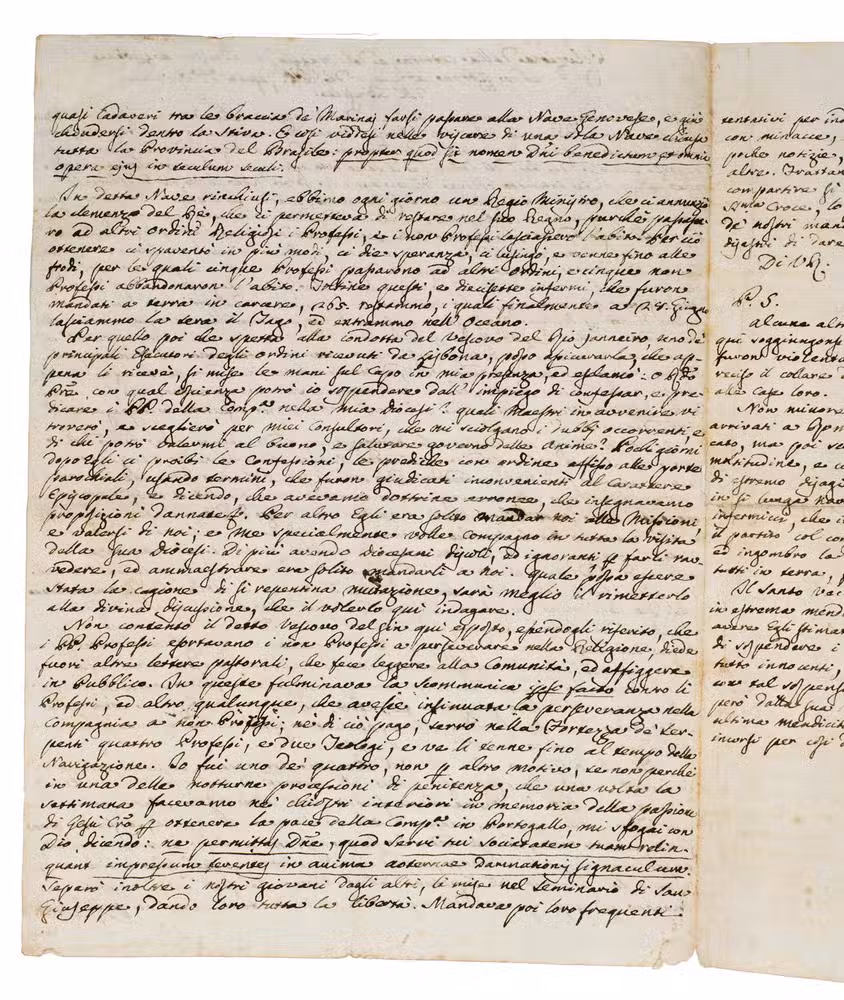 quasi Cadaveri tra le braccia de' Marinaj farsi passare alla Nave Genovese, e già
chiudersi dentro la Stiva. E così viddesi nelle viscere di una sola Nave chiusa
tutta la Provincia del Brasile: propter quod sit nomen Dñi benedictum et omnia
opera ejus in seculum seculi.
In detta Nave rinchiusi, ebbimo ogni giorno un Regio Ministro, che ci annunziò
la clemenza del Rè, che ci permetteva di restare nel suo Regno, purchè passasse-
ro ad altri ordini Religiosi i Professi, e i non Professi lasciassero l'abito. Per ciò
ottenere ci spaventò in più modi, ci die speranza, ci lusingò, e venne fino alle
frodi, per le quali cinque Professi passarono ad altri ordini, e cinque non
Professi abbandonaron l'abito. Toltine questi, e diecisette infermi, che furon
mandati a terra in carcere, 265. restammo, i quali finalmente a 28. Giugno
lasciammo la sera il Tago, ed entrammo nell'Oceano.
Per quello poi che spetta alla condotta del Vescovo del Rio Janneiro, uno de'
principali Esecutori degli ordini ricevuti da Lisbona, posso assicurarla, che ap-
pena li ricevè, si mise le mani sul Capo in mia presenza, ed esclamò: O
Prē, con qual coscienza potrò io sospendere dall'impiego di confessar, e pre-
dicare i PP. della Comp.ª nella mia Diocesi? quali Maestri in avvenire vi
troverò, e sceglierò per miei Consultori, che mi sciolgano i dubbj occorrenti, e
di chi potrò valermi al buono, e salutare governo delle Anime? Pochi giorni
dopo Egli ci proibì le Confessioni, le prediche con ordine affisso alle porte
parochiali, usando termini, che furon giudicati inconvenienti al Carattere
Episcopale, e dicendo, che avevamo dottrina erronea, che insegnavamo
proposizioni dannate. Per altro Egli era solito mandar noi alle Missioni,
e valersi di noi; e me specialmente volle compagno in tutta la visita
della sua Diocesi. Di più avendo Diocesani discoli, ed ignoranti p farli rav-
vedere, ed ammaestrare era solito mandarli a noi. Quale possa essere
stata la cagione di sì repentina mutazione, sarà meglio il rimetterlo
alla divina discussione, che il volerlo qui indagare.
Non contento il detto Vescovo del fin qui esposto, essendogli riferito, che
i PP. Professi esortavano i non Professi a perseverare nella Religione, diede
fuori altre lettere pastorali, che fece leggere alla Comunità, ed affiggere
in Pubblico. In queste fulminava la scommunica ipso facto contro li
Professi, ed altro qualunque, che avesse insinuata la perseveranza nella
Compagnia a' non Professi; nè di ciò pago, serrò nella Fortezza de' Ser-
penti quattro Professi, e due Teologi, e ve li tenne fino al tempo della
Navigazione. Io fui uno de' quattro, non p altro motivo, se non perchè
in una delle notturne processioni di penitenza, che una volta la
settimana facevamo ne' chiostri interiori in memoria della passione
di Gesù Crō p ottenere la pace della Comp.ª in Portogallo, mi sfogai con
Dio, dicendo: ne permittas Dñe, quod servi tui Societatem tuam relin-
quant impressum ferentes in anima aeternae damnationis signaculum.
Separò inoltre i nostri giovani dagli altri, li mise nel Seminario di San
Giuseppe, dando loro tutta la libertà. Mandava poi loro frequenti
tentativi per ind
con minacce,
poche notizie,
altre. Frattan
compartire si
S.ma Croce, lo
de' nostri mand
di dare
Di VR.
P. S.
Alcune alt
qui soggiungons
furon violenta
reciso il collare d
alle Case loro.
Non minore
arrivati a
cato, ma poi se
moltitudine, e c
di estremo disagi
in sì lunga nav
infermicci, che i
il partito col co
ed ingombro la
tutti in terra, f
Il Santo
in estrema mend
avere Egli stimat
di sospendere i
tutto innocenti,
con tal sospens
però dalla sua
ultima mendicità
incorsi per così d